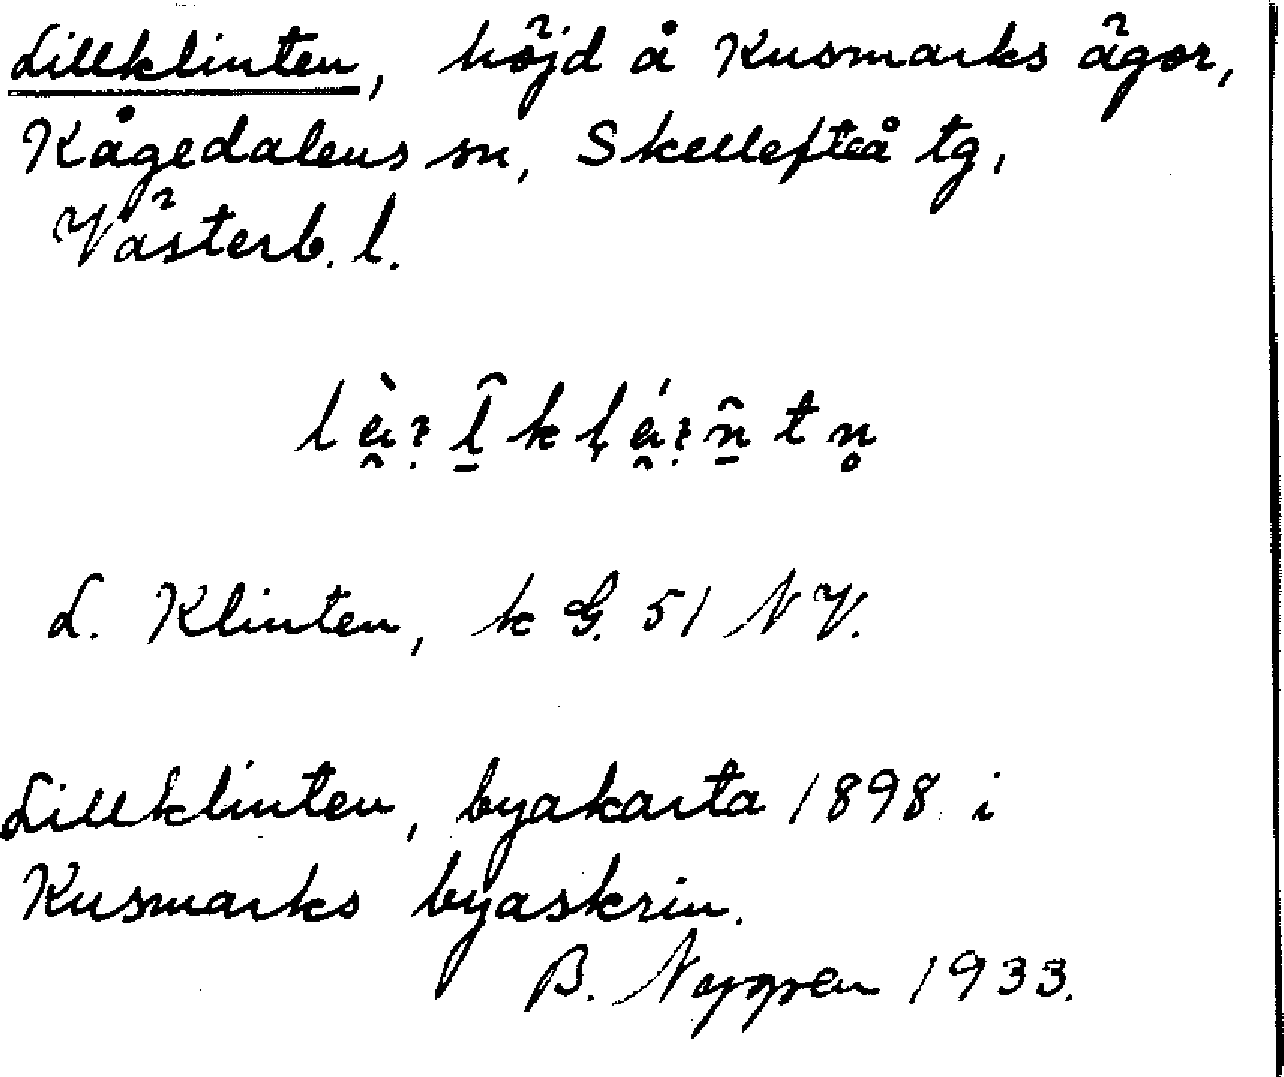 Lillklinten, höjd å Kusmarks ägor,
Kågedalens sn, Skellefteå tg,
Västerb. l.
L. Klinten, k G. 51 NV.
Lillklinten, byakarta 1898 i
Kusmarks byaskrin.
B. Nygren 1933.